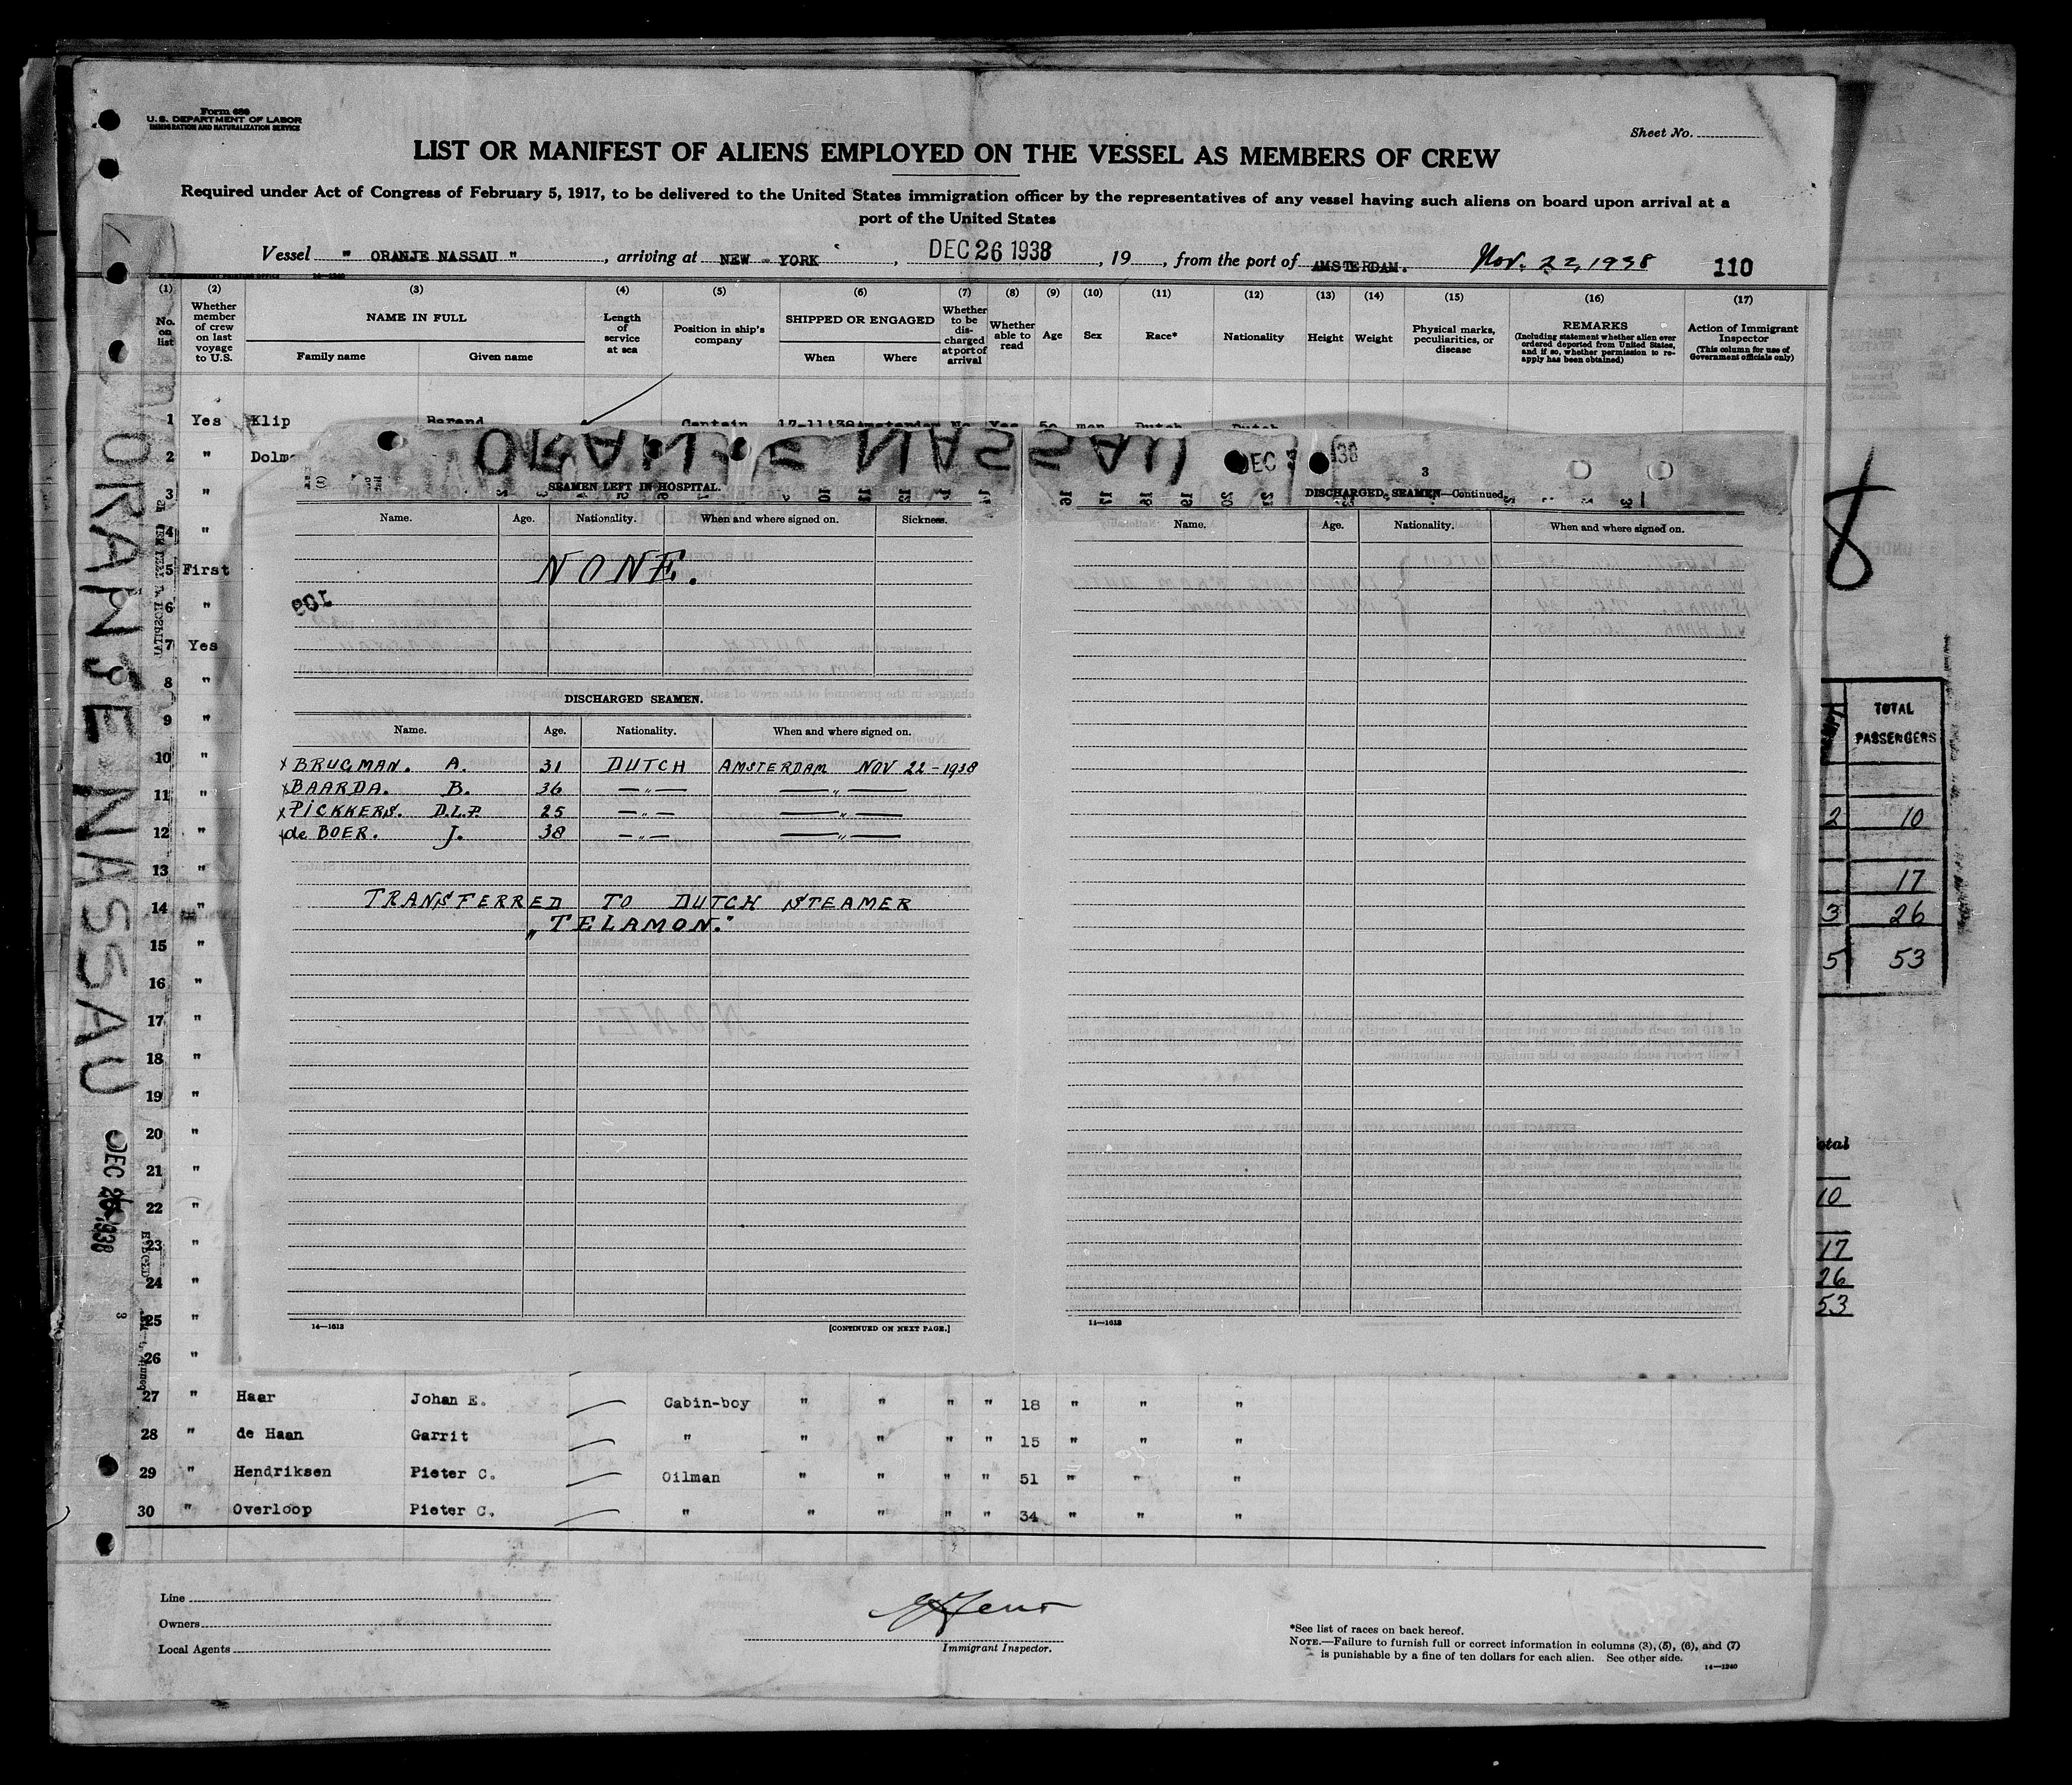 Form 680
U. S. DEPARTMENT OF LABOR
IMMIGRATION AND NATURALIZATION SERVICE
Sheet No.
LIST OR MANIFEST OF ALIENS EMPLOYED ON THE VESSEL AS MEMBERS OF CREW
Required under Act of Congress of February 5, 1917, to be delivered to the United States immigration officer by the representatives of any vessel having such aliens on board upon arrival at a
port of the United States
Vessel " ORANJE NASSAU ", arriving at NEW - YORK, DEC 26 1938, 19, from the port of AMSTERDAM. Nov. 22, 1938 110
(1) No. on list
(2) Whether member of crew on last voyage to U.S.
(3) NAME IN FULL
Family name Given name
(4) Length of service at sea
(5) Position in ship's company
(6) SHIPPED OR ENGAGED
When Where
(7) Whether to be discharged at port of arrival
(8) Whether able to read
(9) Age
(10) Sex
(11) Race*
(12) Nationality
(13) Height
(14) Weight
(15) Physical marks, peculiarities, or disease
(16) REMARKS
(Including statement whether alien ever ordered deported from United States, and if so, whether permission to reapply has been obtained)
(17) Action of Immigrant Inspector
(This column for use of Government officials only)
1 Yes Klip Barend Captain 17-11'38 Amsterdam No Yes 50 man Dutch Dutch
2 "
3 "
4 "
5 First
6 "
7 Yes
8 "
9 "
10 "
11 "
12 "
13 "
14 "
15 "
16 "
17 "
18 "
19 "
20 "
21 "
22 "
23 "
24 "
25 "
26 "
ORANJE NASSAU
3
SEAMEN LEFT IN HOSPITAL.
Name. Age. Nationality. When and where signed on. Sickness.
NONE.
109
DISCHARGED SEAMEN.
Name. Age. Nationality. When and where signed on.
x BRUGMAN. A. 31 DUTCH AMSTERDAM NOV 22-1938
x BAARDA. B. 36 —"— —"—
x PICKKERS. D.L.P. 25 —"— —"—
x de BOER. J. 38 —"— —"—
TRANSFERRED TO DUTCH STEAMER
"TELAMON."
14—1613
[CONTINUED ON NEXT PAGE.]
DISCHARGED SEAMEN—Continued.
Name. Age. Nationality. When and where signed on.
14—1613
27 " Haar Johan E. Cabin-boy " " " " 18 " " "
28 " de Haan Garrit " " " " " 15 " " "
29 " Hendriksen Pieter C. Oilman " " " " 51 " " "
30 " Overloop Pieter C. " " " " " 34 " " "
Line
Owners
Local Agents
Immigrant Inspector.
*See list of races on back hereof.
NOTE.—Failure to furnish full or correct information in columns (3), (5), (6), and (7)
is punishable by a fine of ten dollars for each alien. See other side.
14—1240
ORANJE NASSAU
8
TOTAL
PASSENGERS
2 10
17
3 26
5 53
10
17
26
53